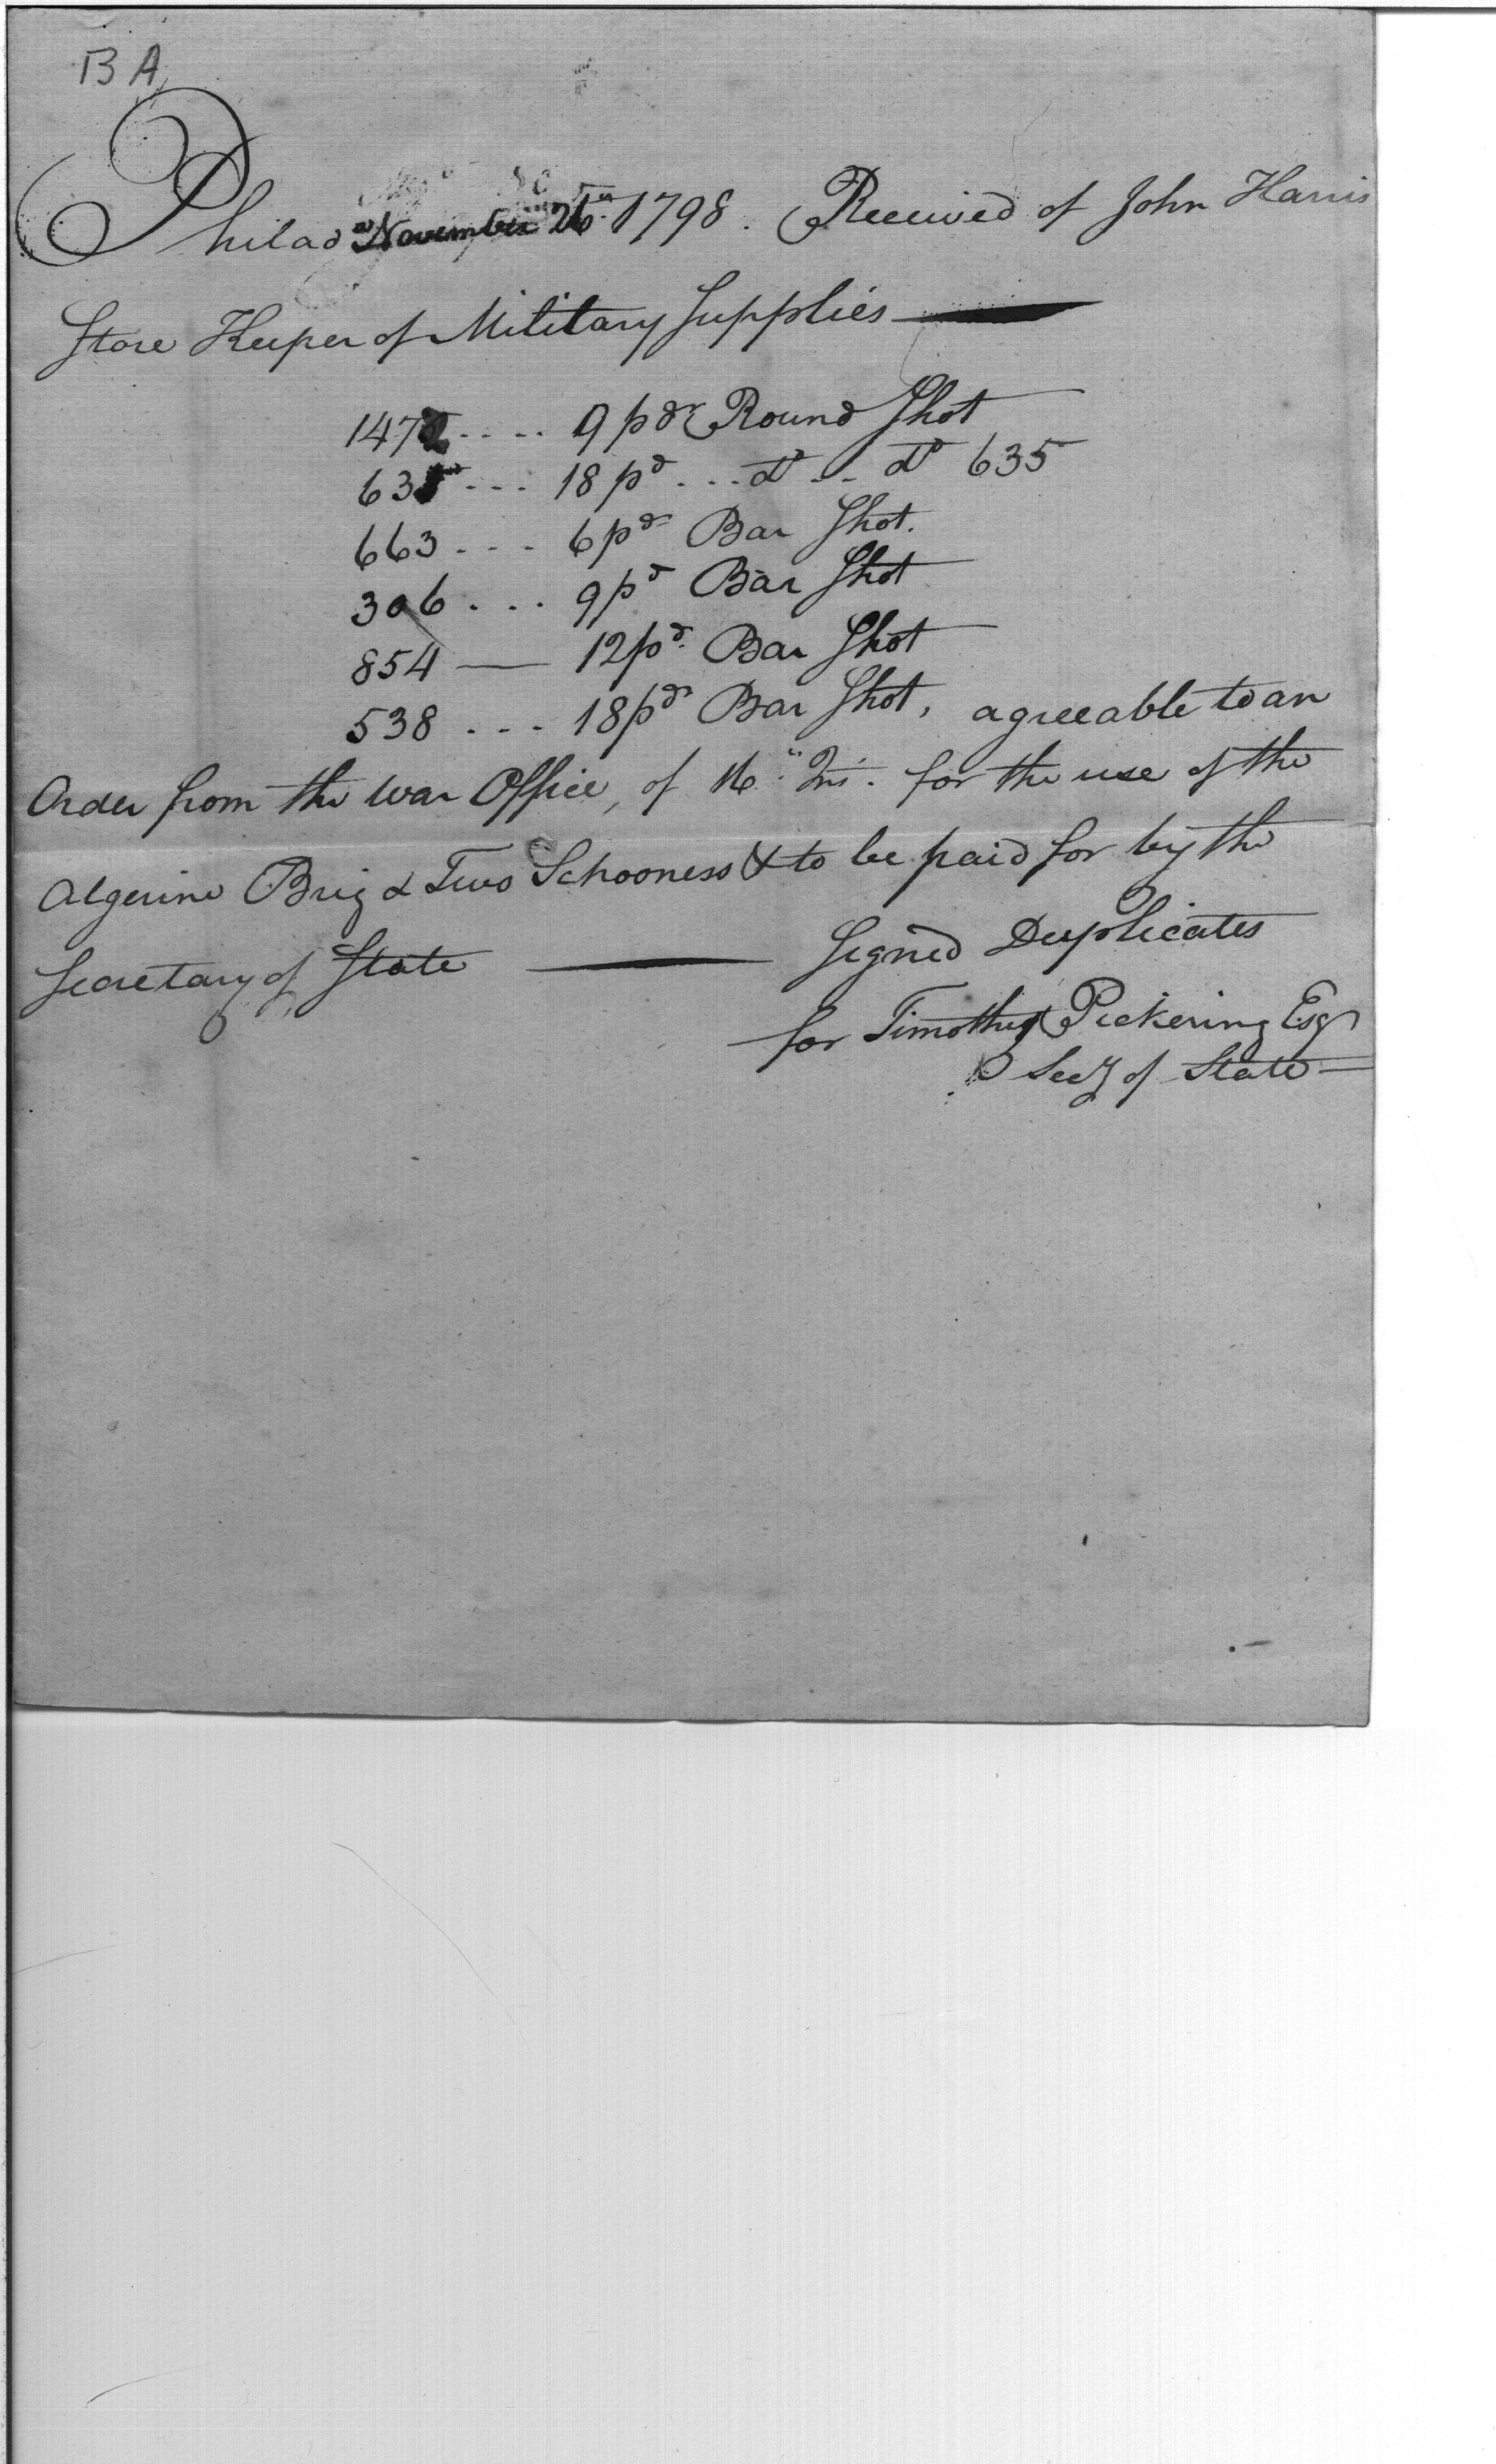 BA
Philad. November 26th 1798. Received of John Harris
Store Keeper of Military Supplies
1472 .... 9 pdr Round Shot
635 ... 18 pd ... do .. do 635
663 ... 6 pdr Bar Shot.
306 ... 9 pd Bar Shot
854 — 12 pd. Bar Shot
538 ... 18 pdr Bar Shot, agreeable to an
Order from the War Office, of 16" Ins. for the use of the
Algerine Brig & Two Schooness & to be paid for by the
Secretary of State — Signed Duplicates
for Timothy Pickering Esqr
Secy of State